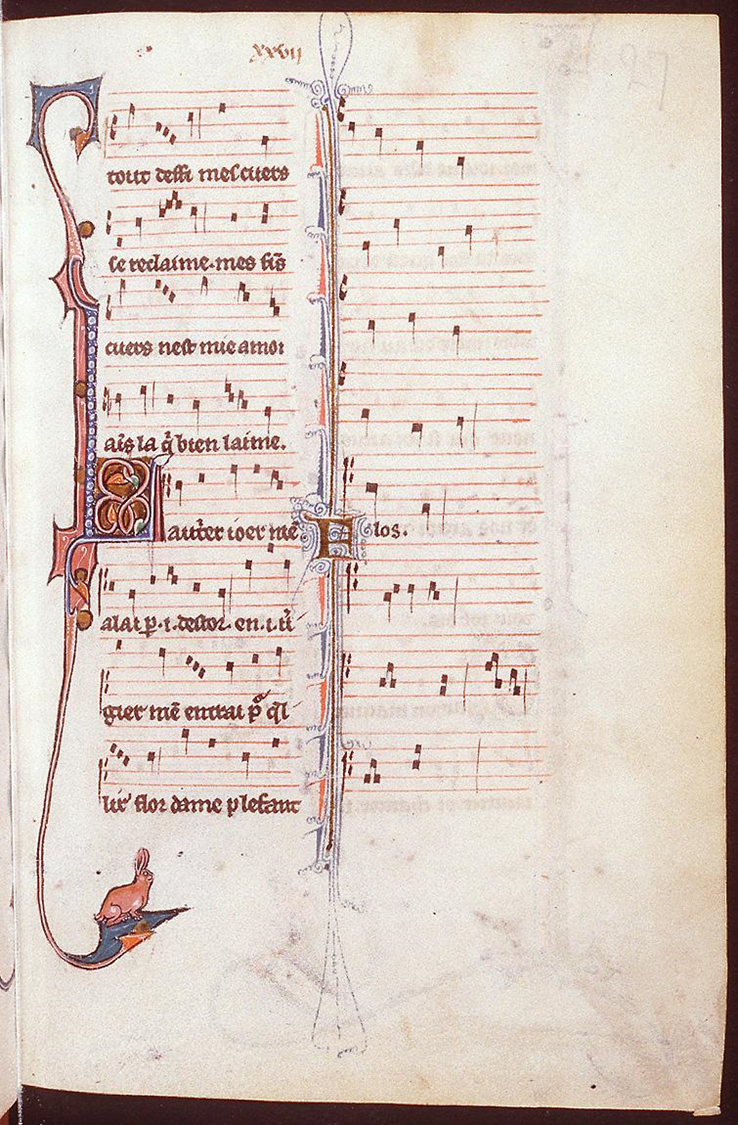 xxvii
27
tout dessi mes cuers
se reclaime. mes fi̅s
cuers nest mie a moi
ai̅s la q̇ bien laime.
Lautrer ioer me̅
alai ꝑ .i. destor. en .i. u̇
gier me̅ entrai pͦ q̇l
lir flor dame plesant
Flos.